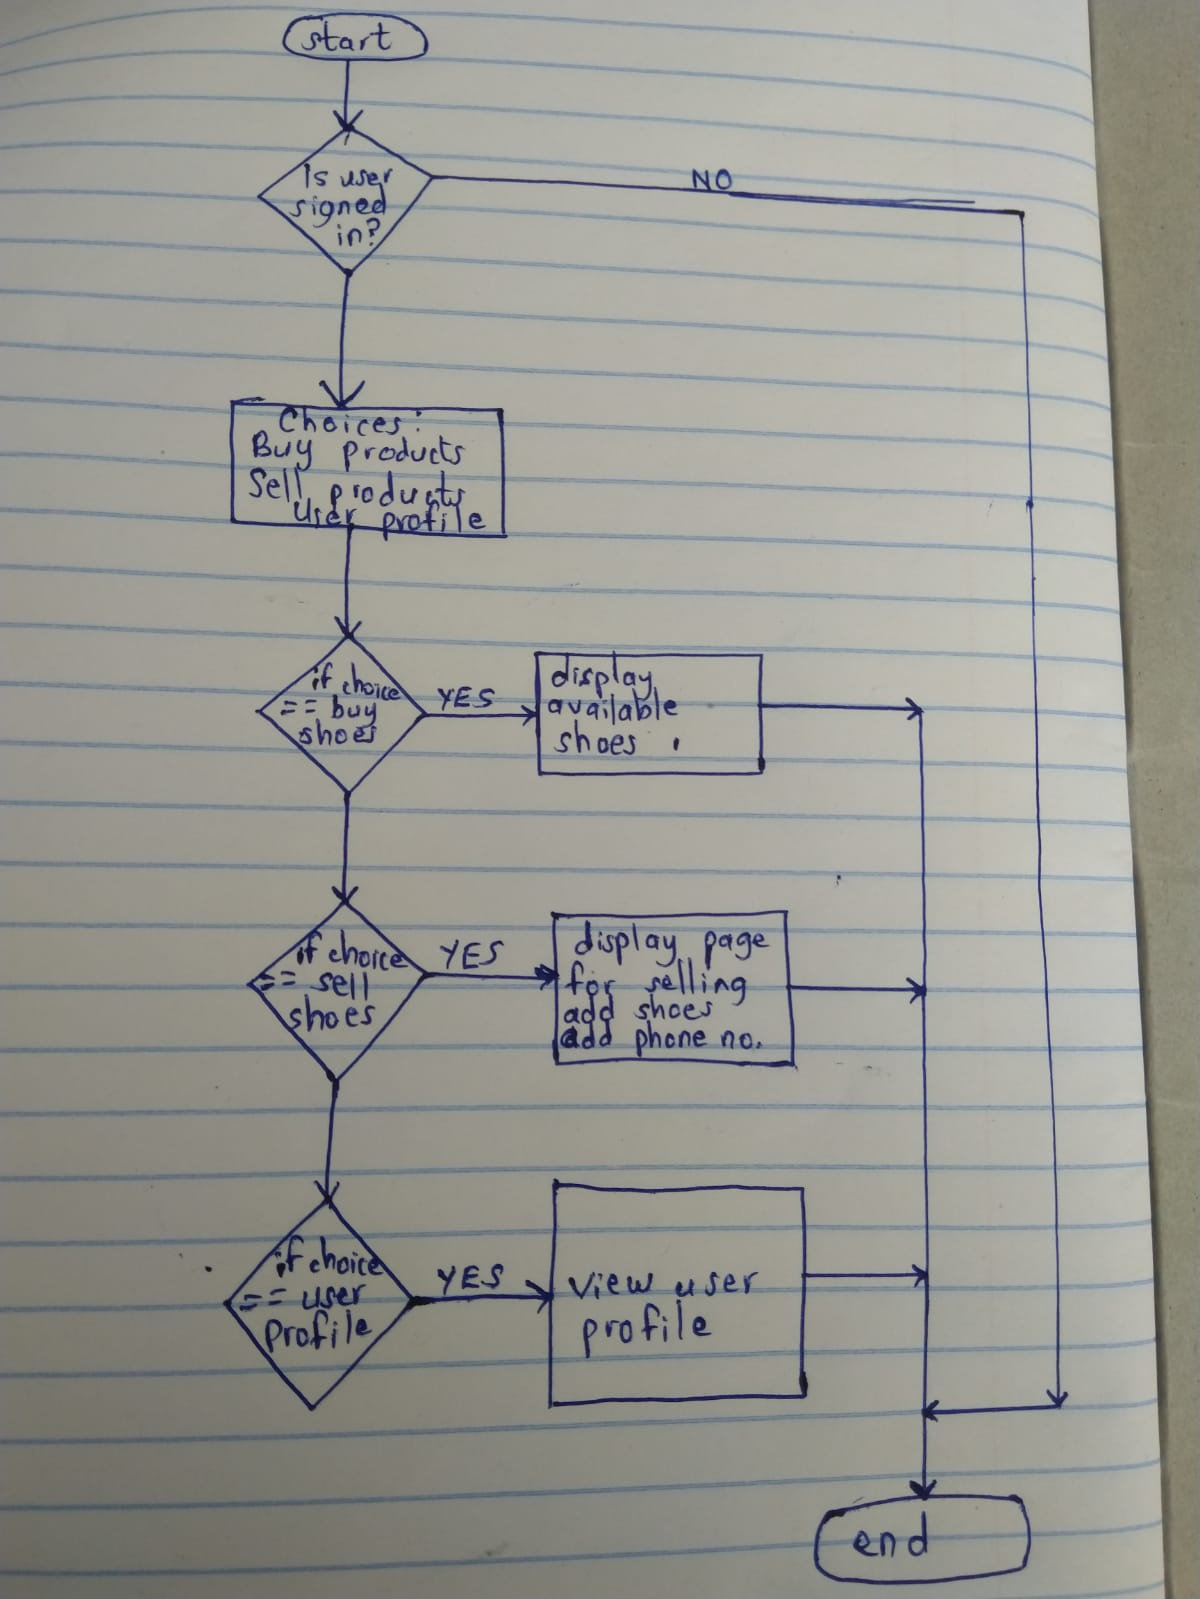 start
Is user
signed
in?
NO
Choices:
Buy products
Sell products
User profile
if choice
== buy
shoes
YES
display
available
shoes .
if choice
== sell
shoes
YES
display page
for selling
add shoes
add phone no.
if choice
== user
profile
YES
view user
profile
end